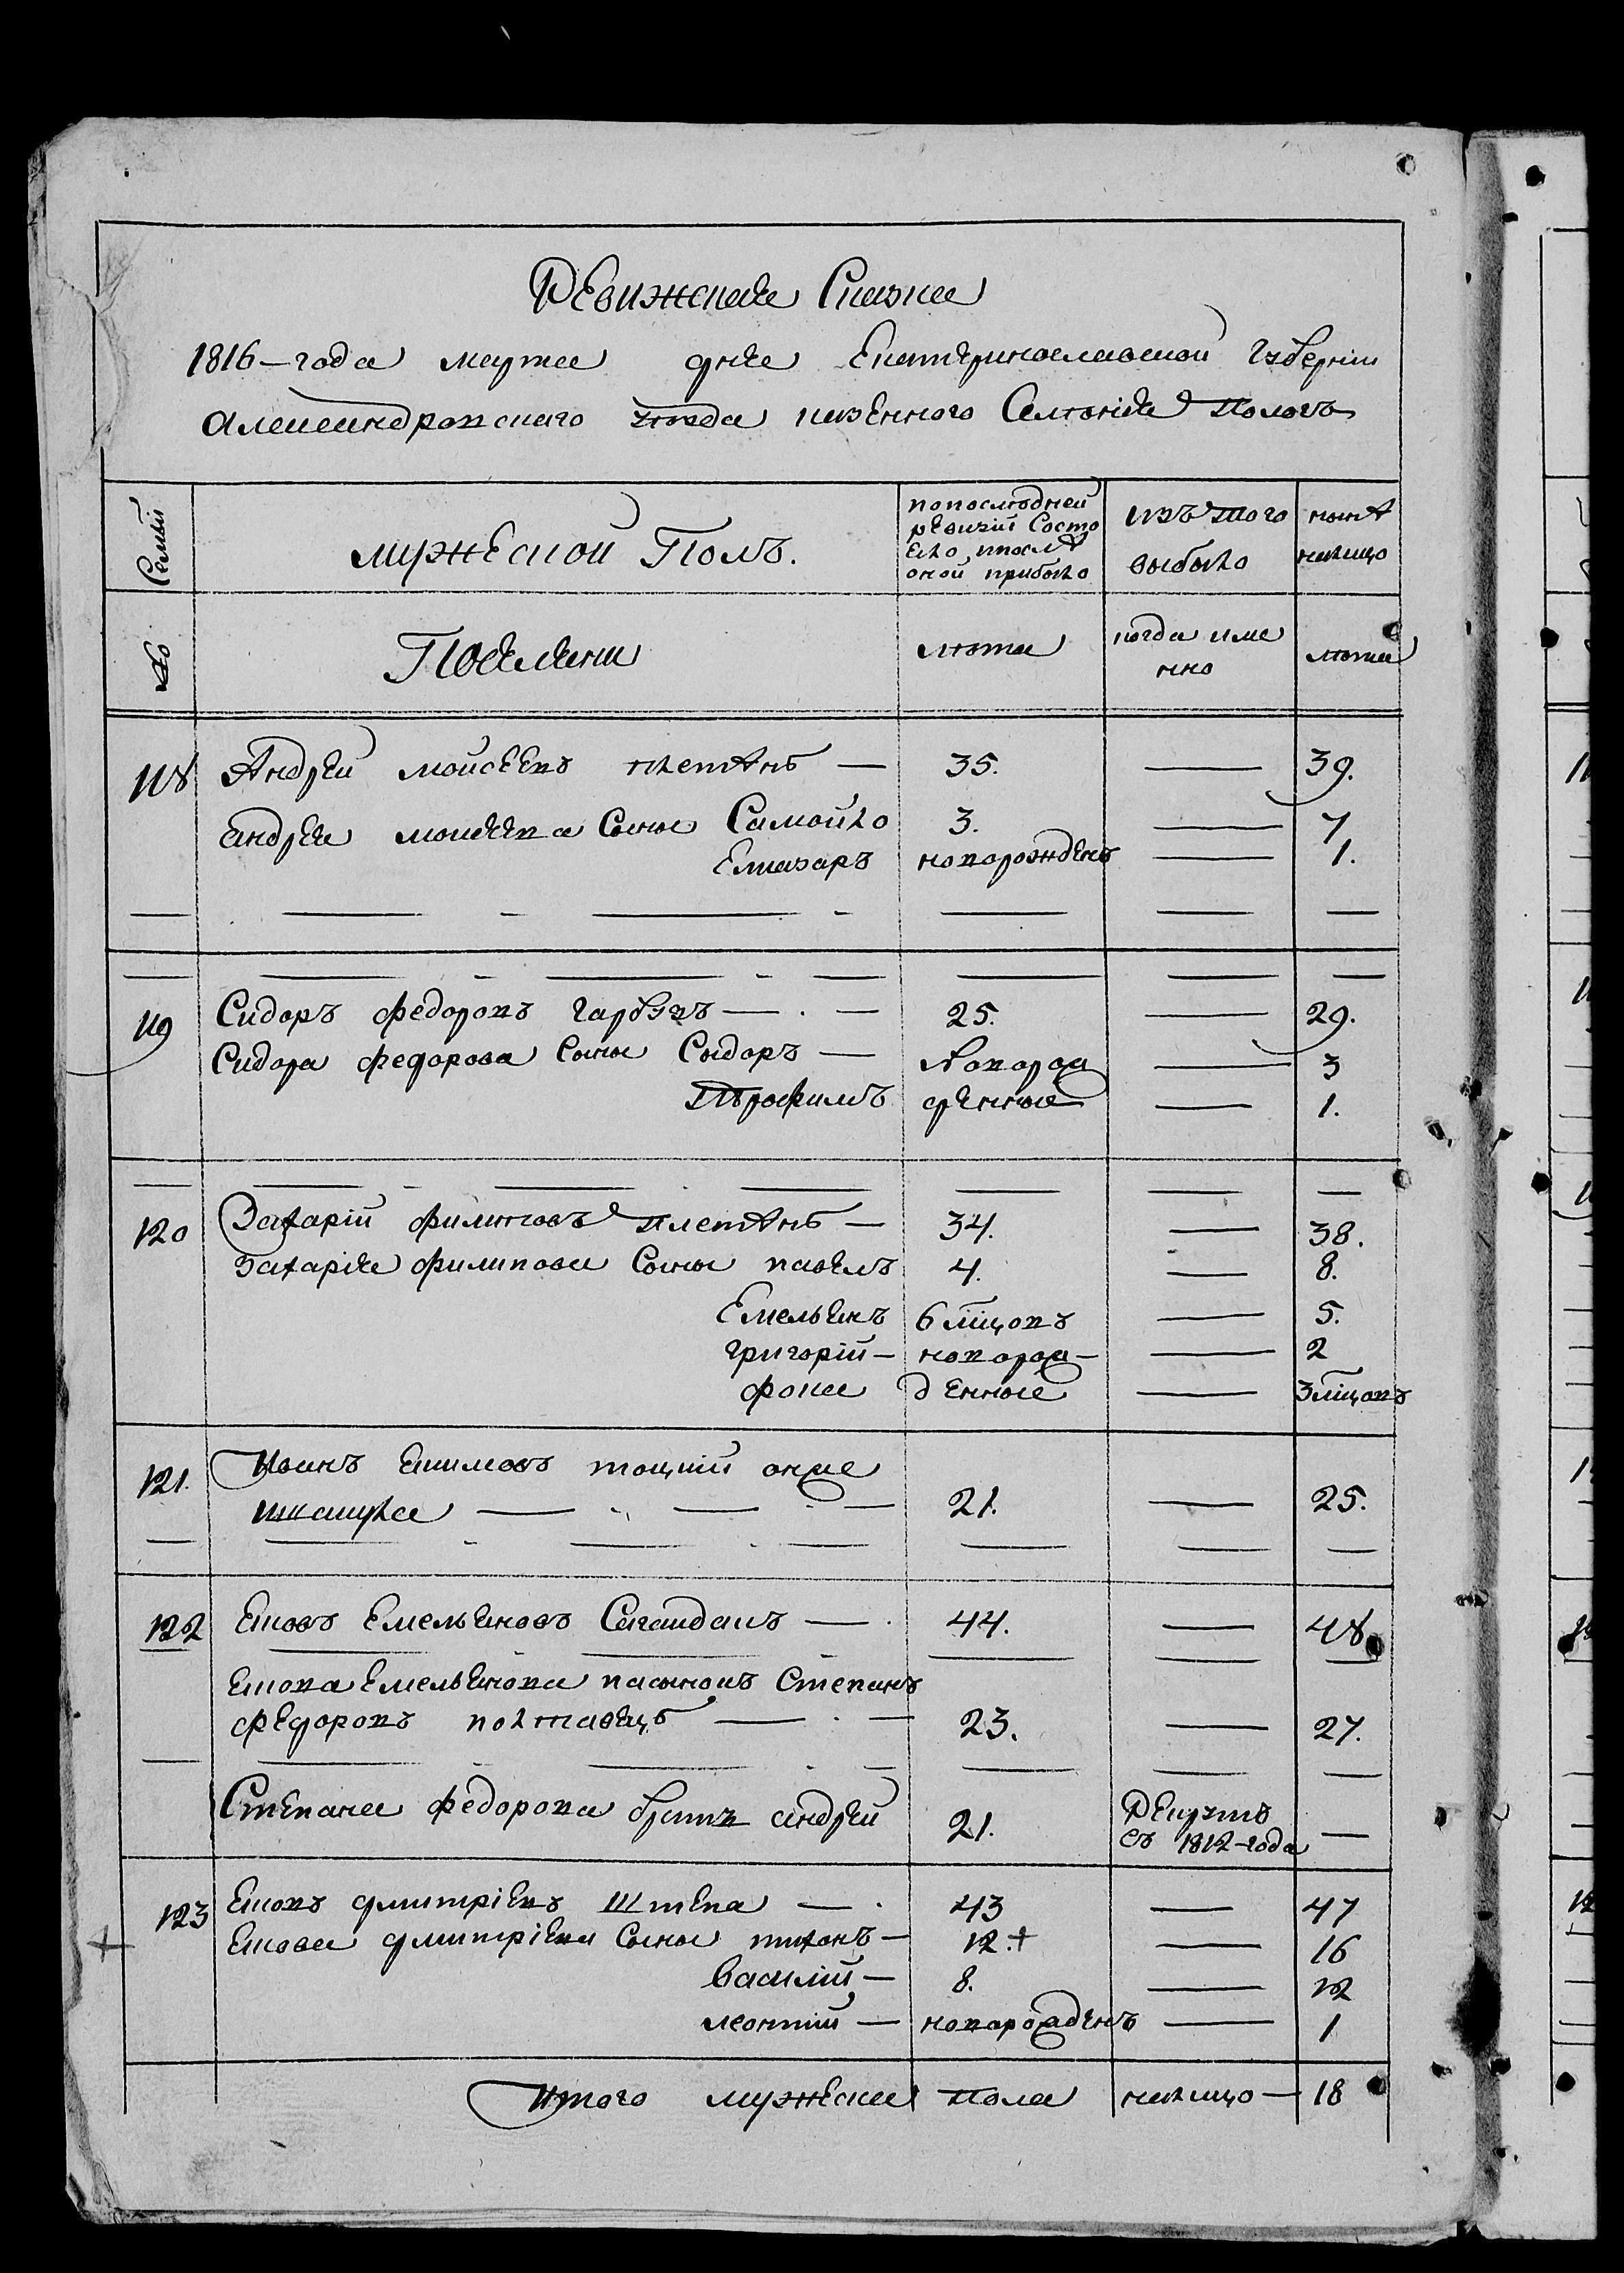 Ревижская Сказка
1816-года марта дня Екатеринославской губерніи
Александровскаго уезда казенного Селенія Пологъ
Семьи
мужеской Полъ.
по последней ревизіи Состо
яло, и после оной прибыло
изъ того выбыло
ныне на лицо
№
Поселяни
лета
когда име
нно
лета
118 Андрей моисеевъ плетень — 35. — 39.
андрея моисеева Сыны Самойло 3. — 7
Елиазаръ новорожденъ — 1.
119 Сидоръ федоровъ гарбузъ — 25. — 29.
Сидора федорова Сыны Сыдоръ — новорож — 3
Трофимъ денные — 1.
120 Захарій филиповъ плетень — 34. — 38.
Захарія филипова Сыны павелъ 4. — 8.
Емельянъ 6 мцовъ — 5.
григорій — новорож — 2
фока денные — 3 мцовъ
121. Иванъ якимовъ тоцкій онже
шкапула — 21. — 25.
122 яковъ Емельяновъ Сагайдакъ — 44. — 48
якова Емельянова пасынокъ Степанъ
федоровъ полтавецъ — 23. — 27.
Степана федорова братъ андрей 21. Рекрутъ —
съ 1812-года
123 яковъ дмитріевъ Штепа — 43 — 47
якова дмитріева Сыны тихонъ — 12.+ — 16
василій — 8. — 12
леонтій — новорожденъ — 1
Итого мужеска пола на лицо — 18